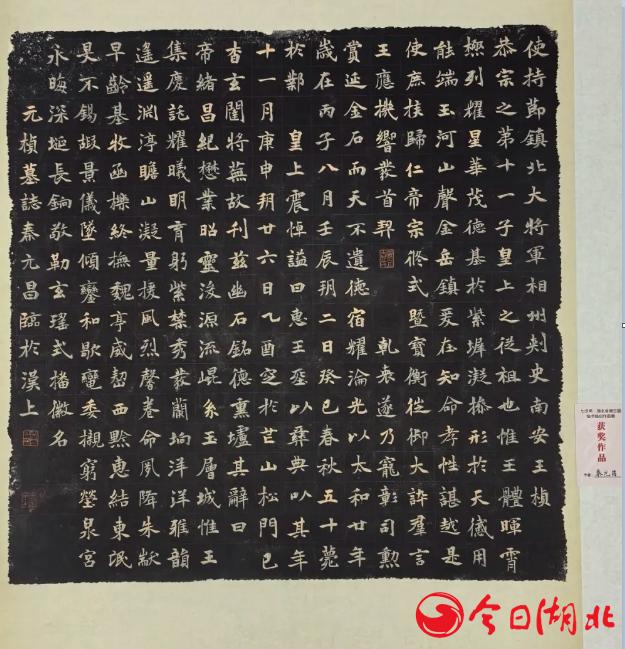 使持節鎮北大將軍相州刺史南安王楨
恭宗之第十一子皇上之從祖也惟王體暉霄
極列耀星華茂德基於紫墀凝操形於天感用
能端玉河山聲金岳鎮爰在知命孝性諶越是
使庶族歸仁帝宗攸式暨寶衡徙御大訊羣言
王應機響發首契 乾衷遂乃寵彰司勳
賞延金石而天不遺德宿耀淪光以太和廿年
歲在丙子八月壬辰朔二日癸巳春秋五十薨
於鄴 皇上震悼諡曰惠王葬以彝典以其年
十一月庚申朔廿六日乙酉窆於芒山松門已
杳玄闥將蕪故刊茲幽石銘德熏壚其辭曰
帝緒昌紀懋業昭靈浚源流崐系玉層城惟王
集慶託耀曦明育躬紫禁秀發蘭坰洋洋雅韻
遙遙淵渟瞻山凝量援風烈馨卷命夙降朱黻
早齡基牧函櫟終撫魏亭威整西黔惠結東氓
旻不錫嘏景儀墜傾鑾和歇轡委櫬窮塋泉宮
永晦深埏長扃敬勒玄瑤式播徽名
元楨墓誌秦元昌臨於漢上
获奖作品
秦元昌
今日湖北